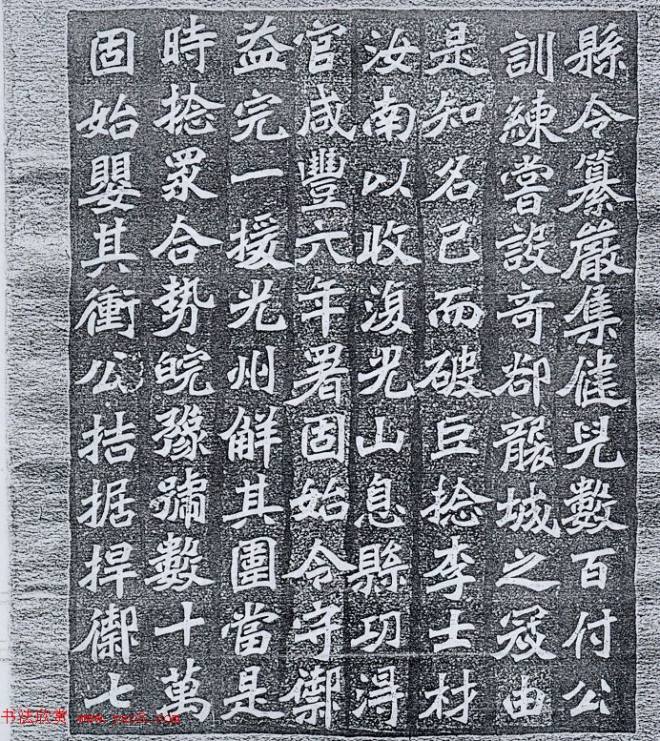 縣令纂嚴集健兒數百付公
訓練嘗設奇卻襲城之寇由
是知名已而破巨捻李士材
汝南以收復光山息縣功得
官咸豐六年署固始令守禦
益完一援光州解其圍當是
時捻眾合势皖豫號數十萬
固始嬰其衝公拮据捍禦七
书法欣赏